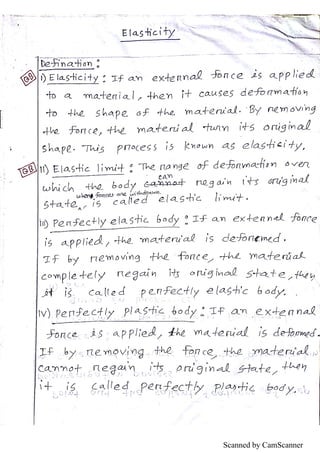 Elasticity
Defination :
QB i) Elasticity : If an external force is applied
to a material, then it causes deformation
to the shape of the material. By removing
the force, the material turn its original
shape. This process is known as elasticity.
QB ii) Elastic limit : The range of deformation over
which the body cannot can regain its original
state, when forces are withdrawn is called elastic limit.
iii) Perfectly elastic body : If an external force
is applied, the material is deformed.
If by removing the force, the material
completely regain its original state, then
it is called perfectly elastic body.
iv) Perfectly plastic body : If an external
force is applied, the material is deformed.
If by removing the force, the material
cannot regain its original state, then
it is called perfectly plastic body.
Scanned by CamScanner